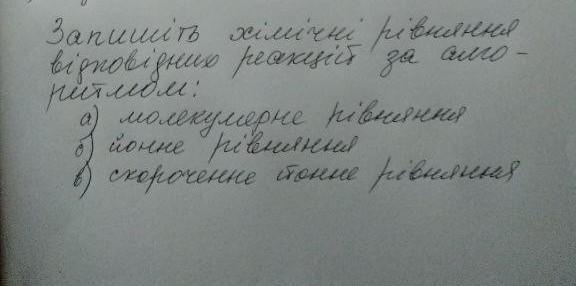 Запишіть хімічні рівняння
відповідних реакцій за алго-
ритмом:
а) молекулярне рівняння
б) йонне рівняння
в) скорочене йонне рівняння